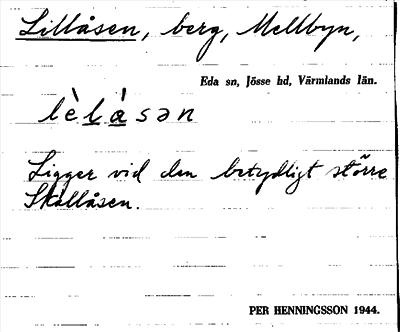 Lillåsen, berg, Mellbyn,
Eda sn, Jösse hd, Värmlands län.
lèlàsən
Ligger vid den betydligt större
Skallåsen.
PER HENNINGSSON 1944.